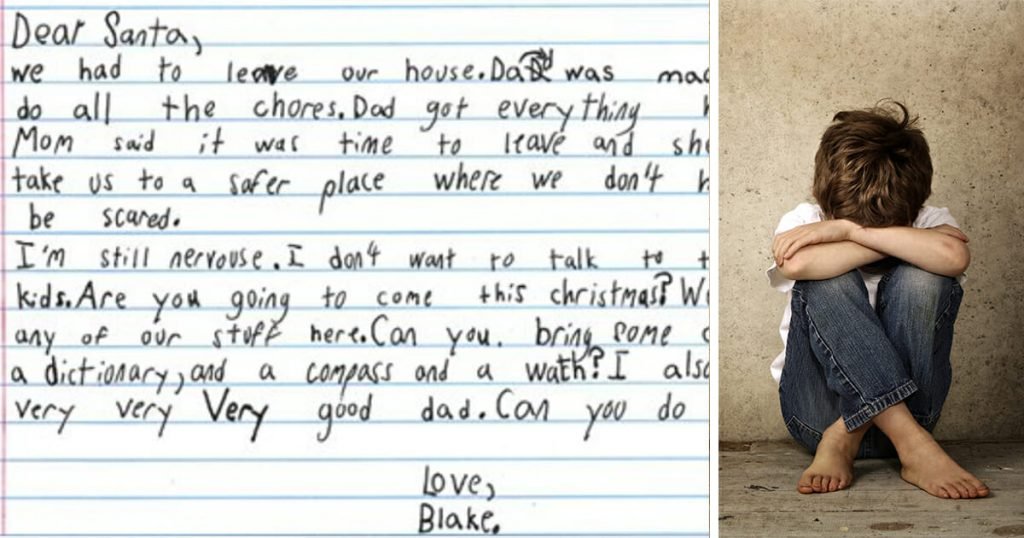 Dear Santa,
we had to leave our house. Dad was
do all the chores. Dad got everything
Mom said it was time to leave and
take us to a safer place where we don't
be scared.
I'm still nervouse. I don't want to talk to
kids. Are you going to come this christmas?
any of our stuff here. Can you. bring some
a dictionary, and a compass and a wath? I
very very very good dad. Can you do
Love,
Blake.